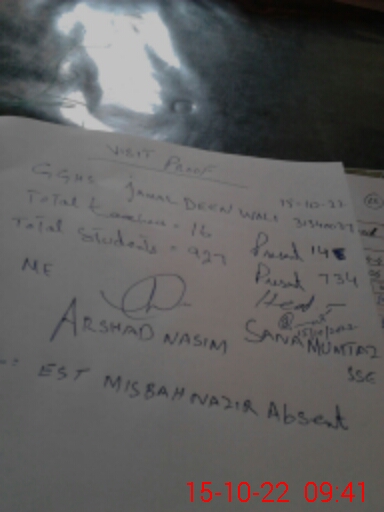 VISIT PROOF
GGHS JAMAL DEEN WALI
15-10-22
Total Teachers = 16 Present 14
Total Students = 927 Present 734
ME
Head -
ARSHAD NASIM
SANA MUMTAZ
SSE
EST MISBAH NAZIR Absent
15-10-22 09:41